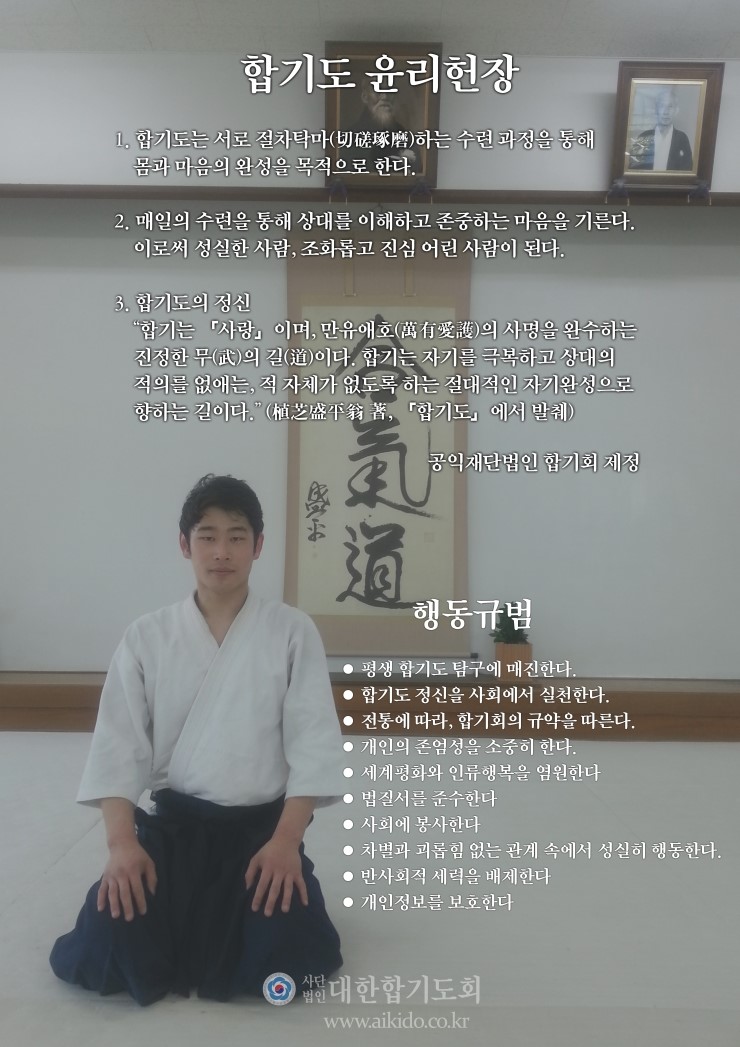 합기도 윤리헌장
1. 합기도는 서로 절차탁마(切磋琢磨)하는 수련 과정을 통해
몸과 마음의 완성을 목적으로 한다.
2. 매일의 수련을 통해 상대를 이해하고 존중하는 마음을 기른다.
이로써 성실한 사람, 조화롭고 진심 어린 사람이 된다.
3. 합기도의 정신
“합기는 『사랑』이며, 만유애호(萬有愛護)의 사명을 완수하는
진정한 무(武)의 길(道)이다. 합기는 자기를 극복하고 상대의
적의를 없애는, 적 자체가 없도록 하는 절대적인 자기완성으로
향하는 길이다.” (植芝盛平翁 著, 『합기도』에서 발췌)
공익재단법인 합기회 제정
合氣道
盛平
행동규범
● 평생 합기도 탐구에 매진한다.
● 합기도 정신을 사회에서 실천한다.
● 전통에 따라, 합기회의 규약을 따른다.
● 개인의 존엄성을 소중히 한다.
● 세계평화와 인류행복을 염원한다
● 법질서를 준수한다
● 사회에 봉사한다
● 차별과 괴롭힘 없는 관계 속에서 성실히 행동한다.
● 반사회적 세력을 배제한다
● 개인정보를 보호한다
사단법인 대한합기도회
www.aikido.co.kr